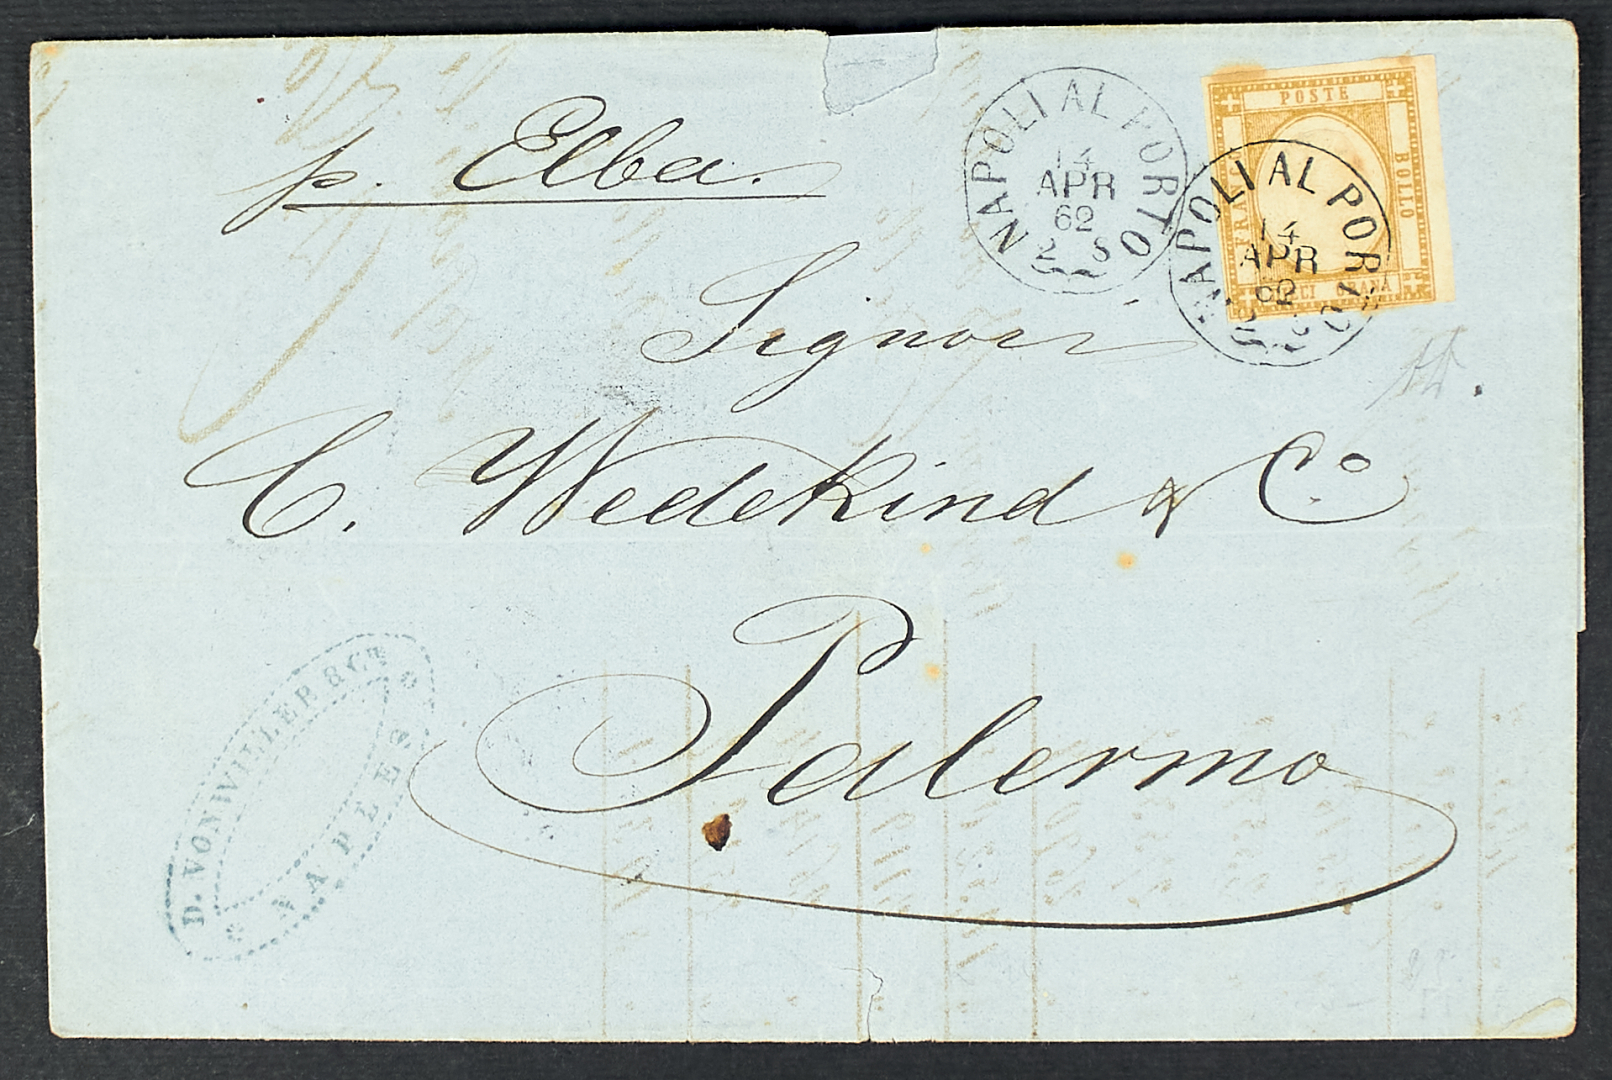 p. Elba.
NAPOLI AL PORTO
14
APR
62
2 S
POSTE
BOLLO
FRANCO
DIECI GRANA
NAPOLI AL PORTO
14
APR
62
Signori
C. Wedekind & Co
Palermo
D. VONWILLER & Co
NAPLES